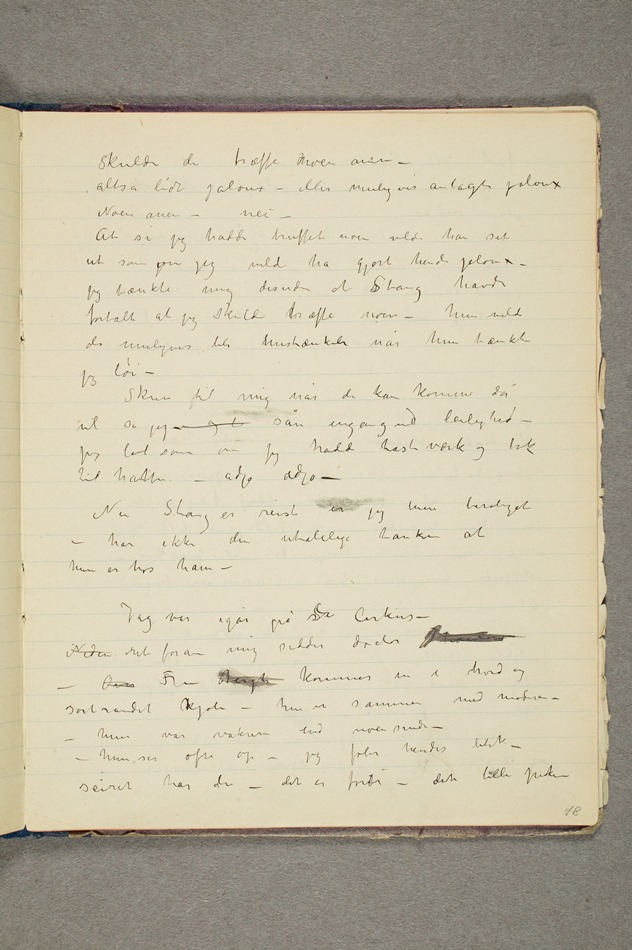 Skulde de træffe noen anen –
altså lidt jaloux – eller muligvis antaget jaloux
Noen anen – nei –
At si jeg hadde truffet noen vilde han set
ut som om jeg vild ha gjort hende jaloux –
jeg tænkte mig desuden at Stang havde
fortalt at jeg skulde træffe noen – hun vilde
da muligvis bli mistænksom når hun tænkte
jeg løi –
Skriv til mig når de kan komme da
sa jeg sån ingang ved leilighed –
jeg lod som om jeg hadde hastværk og tok
til hatten – adjø adjø –
Nu Stang er reist er jeg mere beroliget
– har ikke den uhældige tanken at
hun er hos ham –
Jeg var igår på Cirkus –
Nedenfor det foran mig sidder doctor
– Fru kommer in i hvid og
sortrandet kjole – hun er sammen med moderen –
– hun var vakrere end noensinde –
– hun ser ofte op – jeg føler hendes blik –
seiret har du – det er forbi – det lille
48